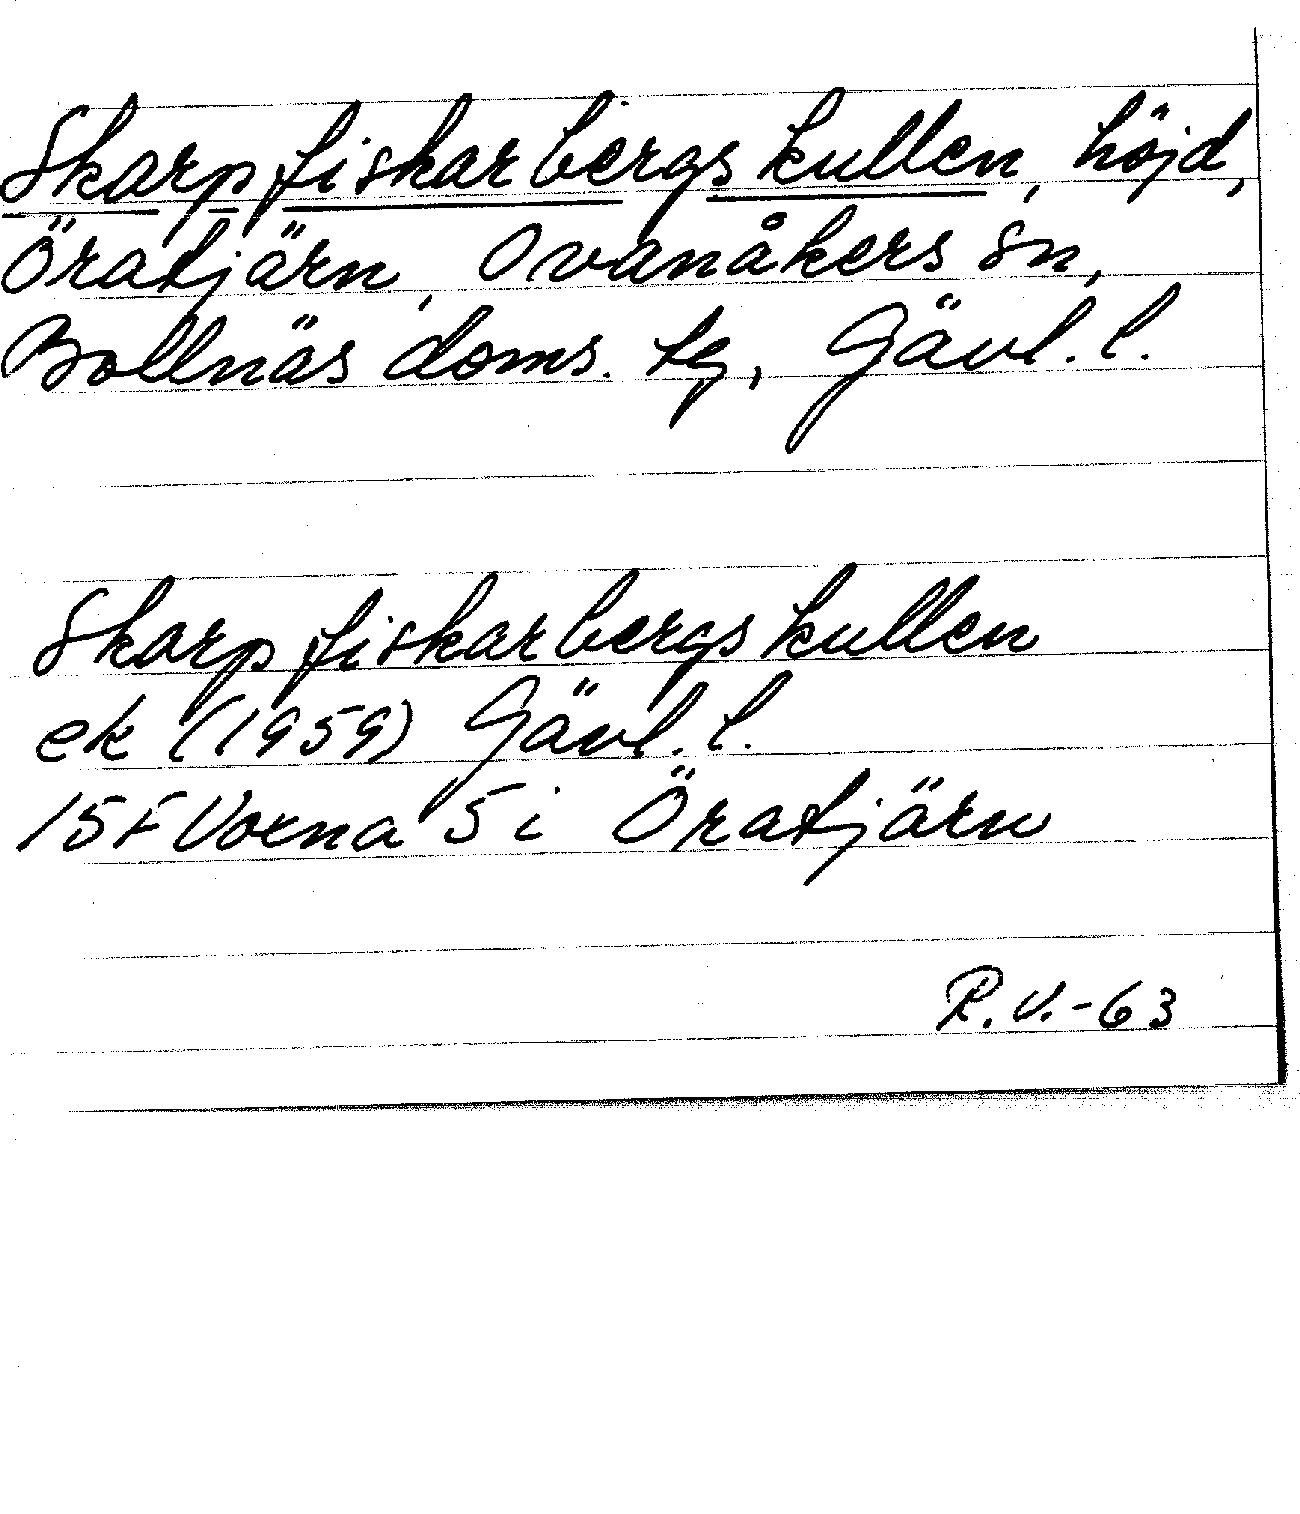 Skarpfiskarbergskullen, höjd,
Öratjärn, Ovanåkers sn,
Bollnäs doms. tg, Gävl. l.
Skarpfiskarbergskullen
ek (1959) Gävl. l.
15F Voxna 5 i Öratjärn
R.V.-63